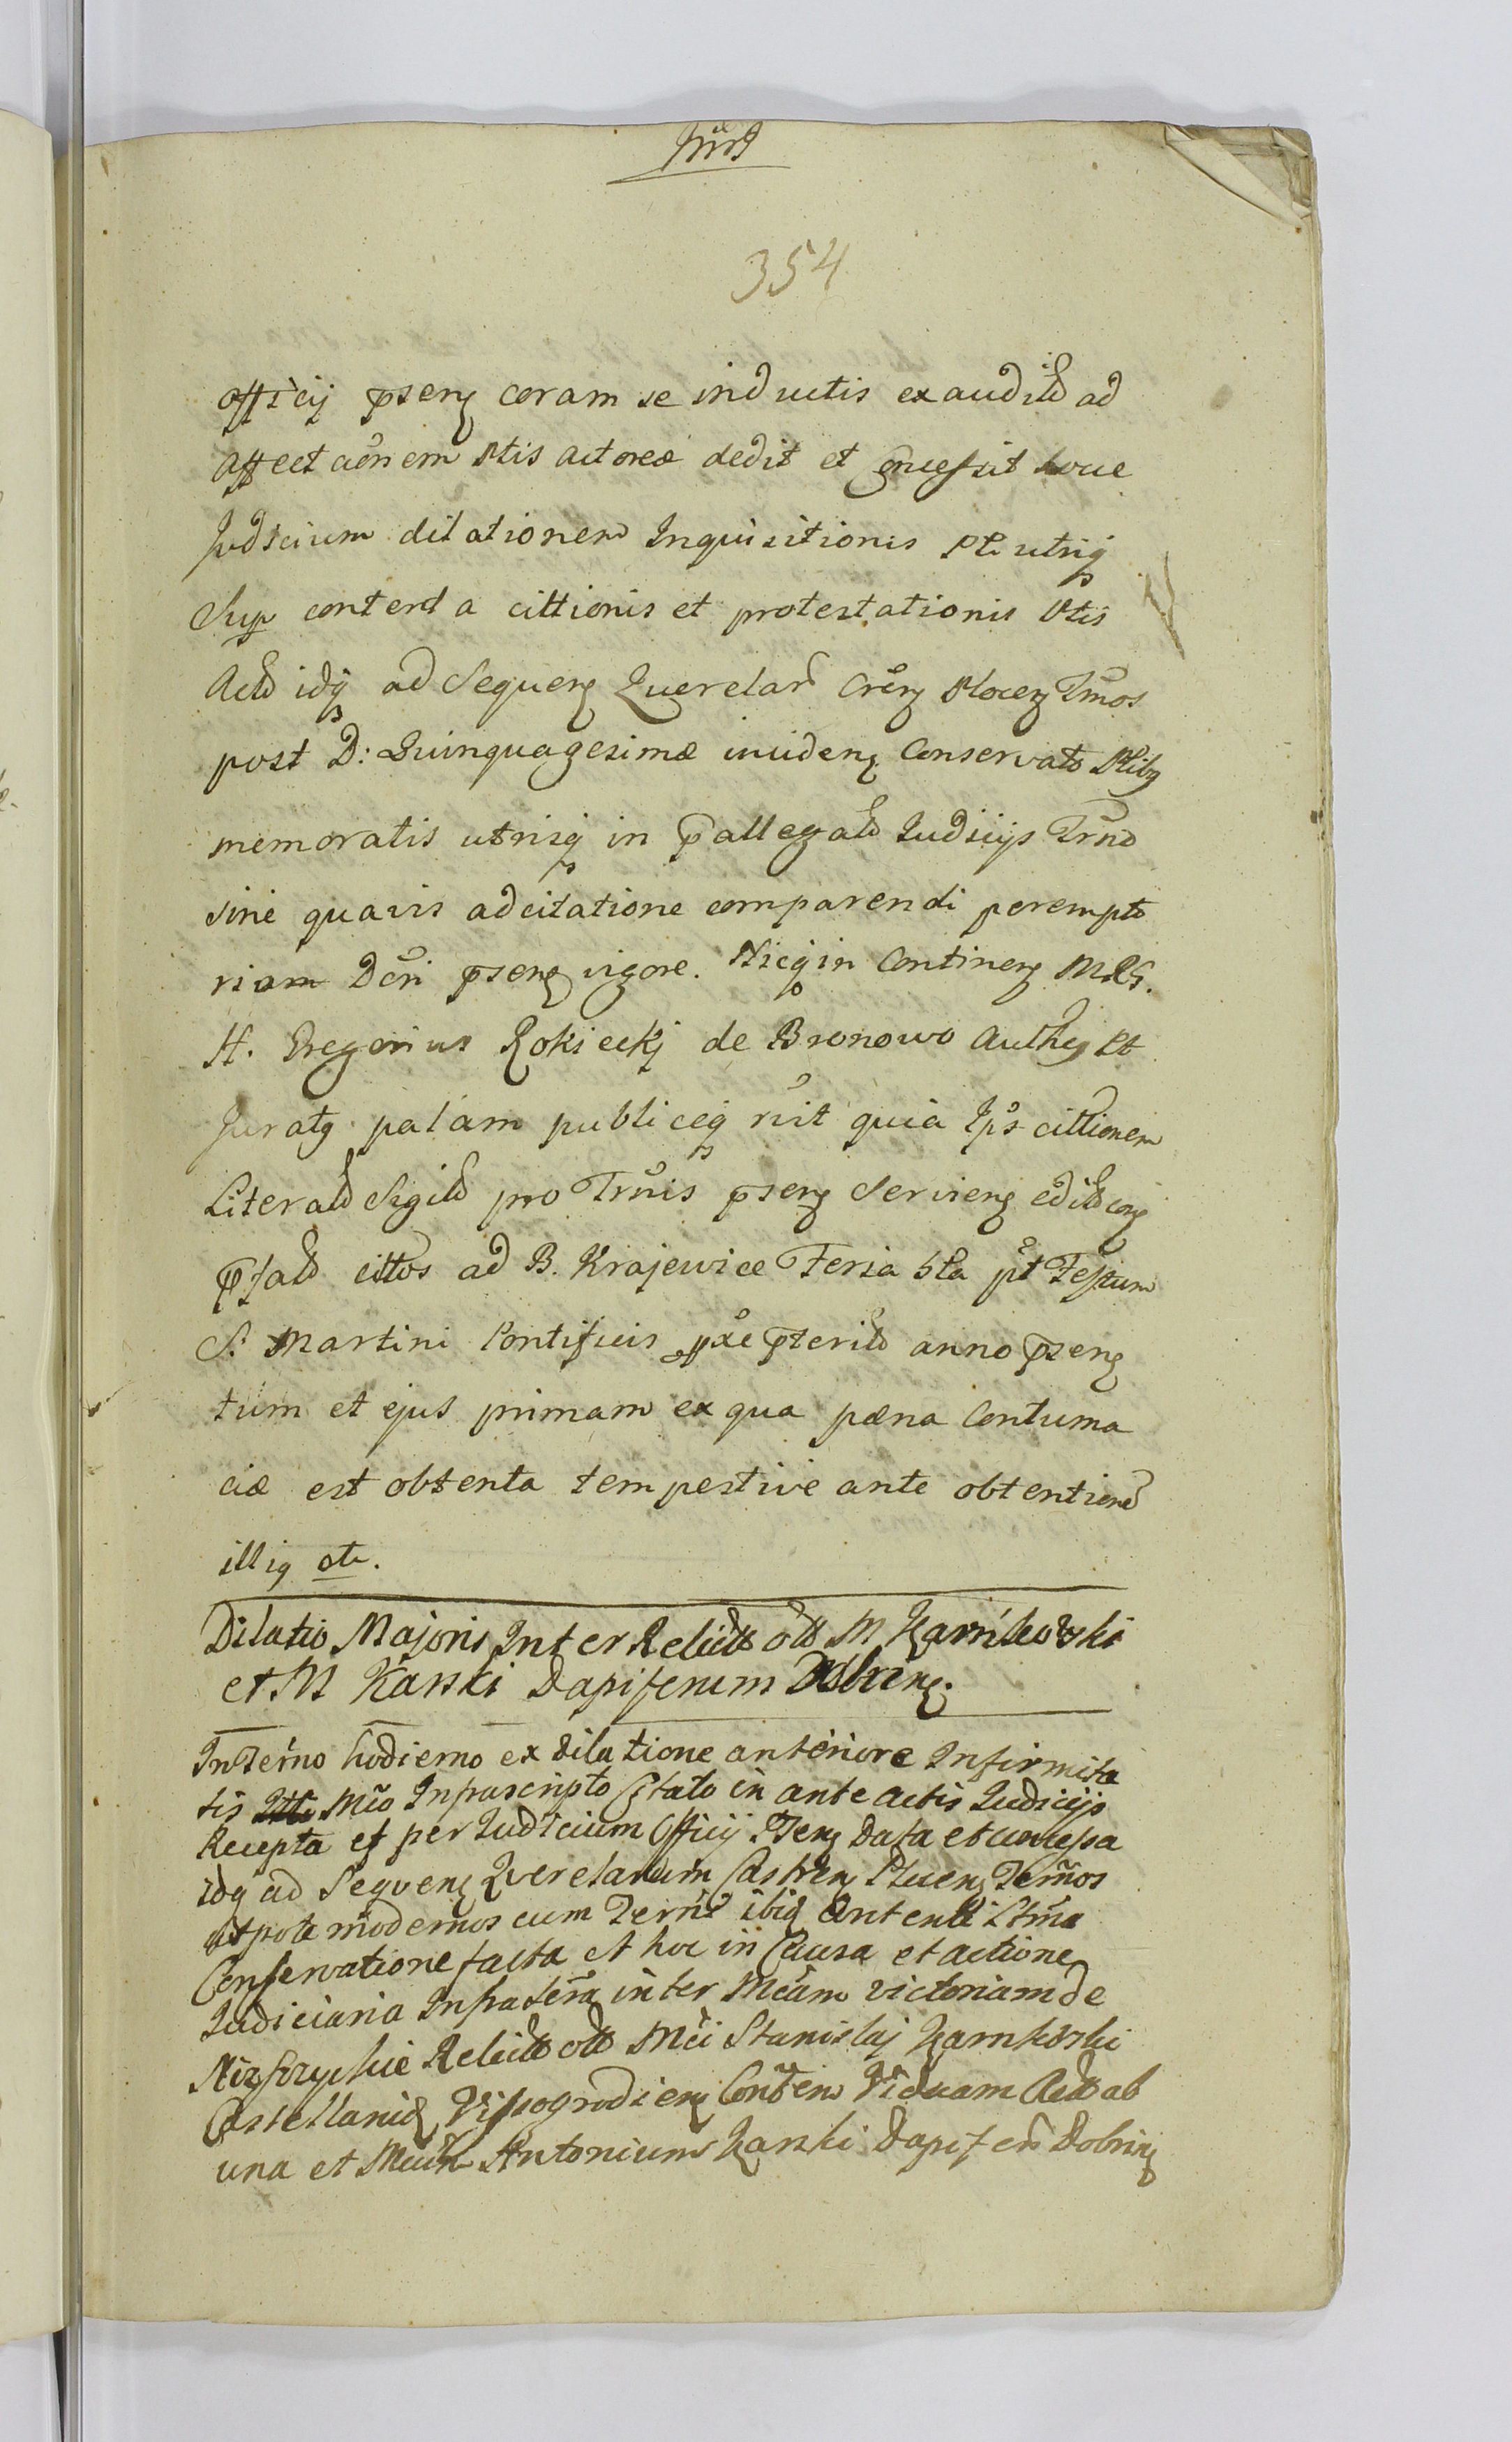 354
officij pseng coram se inductis exaudits ad
affectaōnem Ptis actoreæ dedit et concessit
Judicium dilationem Inquisitionis Pti utriq
Sup contenta cittionis et protestationis Ptis
Acto idq ad Sequeng Querelar Crēng Plocens Trnos
post D: Quinquagesimæ incideng Conservato Ptibg
memoratis utrisq in pallegato Iudicijs Trno
sine quavis adcitatione comparendi perempto
riam Dcri pseng vigore. Hicq in Contineng MRG.
H. Gregorius Rokicckj de Bronowo Autheg Et
Juratg palam publiceq rūit quia Ips cittionem
Literato Sigilo pro Trnis pseng Servieng
citos ad B. Krajewice Feria 5ta pt Festum
S. Martini Pontificis pxe pterito anno pseng
tum et ejus primam ex qua pæna Contuma
ciæ est obtenta tempestive ante obtentione
illig etc.
Dilatio Majoris Inter Relicto oto M Karnkowski
et M Karski Dapiferum Dobrzeng.
In Termo hodierno ex dilatione anteriore Infirmita
tis Mco Infrascripto Citato in anteactis Iudicijs
Recepta et per Iudicium Officij Pseng Data et concessa
idq ad Seqveng Qverelarum Castreng Ploceng Termos
utpote modernos cum Termi ibiq Attenti
Conservatione facta et hoc in Causa et actione
Iudiciaria Infrascra inter Mcam victoriam de
Relicto oto Mci Stanislaj Karnkowski
Castellanid Vissogrodieng Contem Viduam Acto ab
una et Mcum Antonium Karski Dapifer Dobring